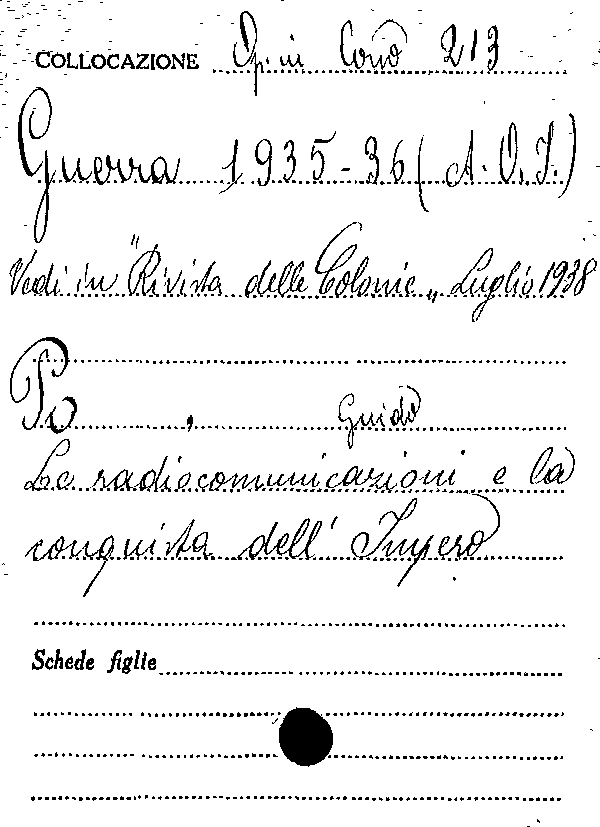 COLLOCAZIONE Op. in Cons 213
Guerra 1935-36 (A.O.I.)
Vedi in "Rivista delle Colonie„ Luglio 1938
Po, Guido
Le radiocomunicazioni e la
conquista dell'Impero
Schede figlie